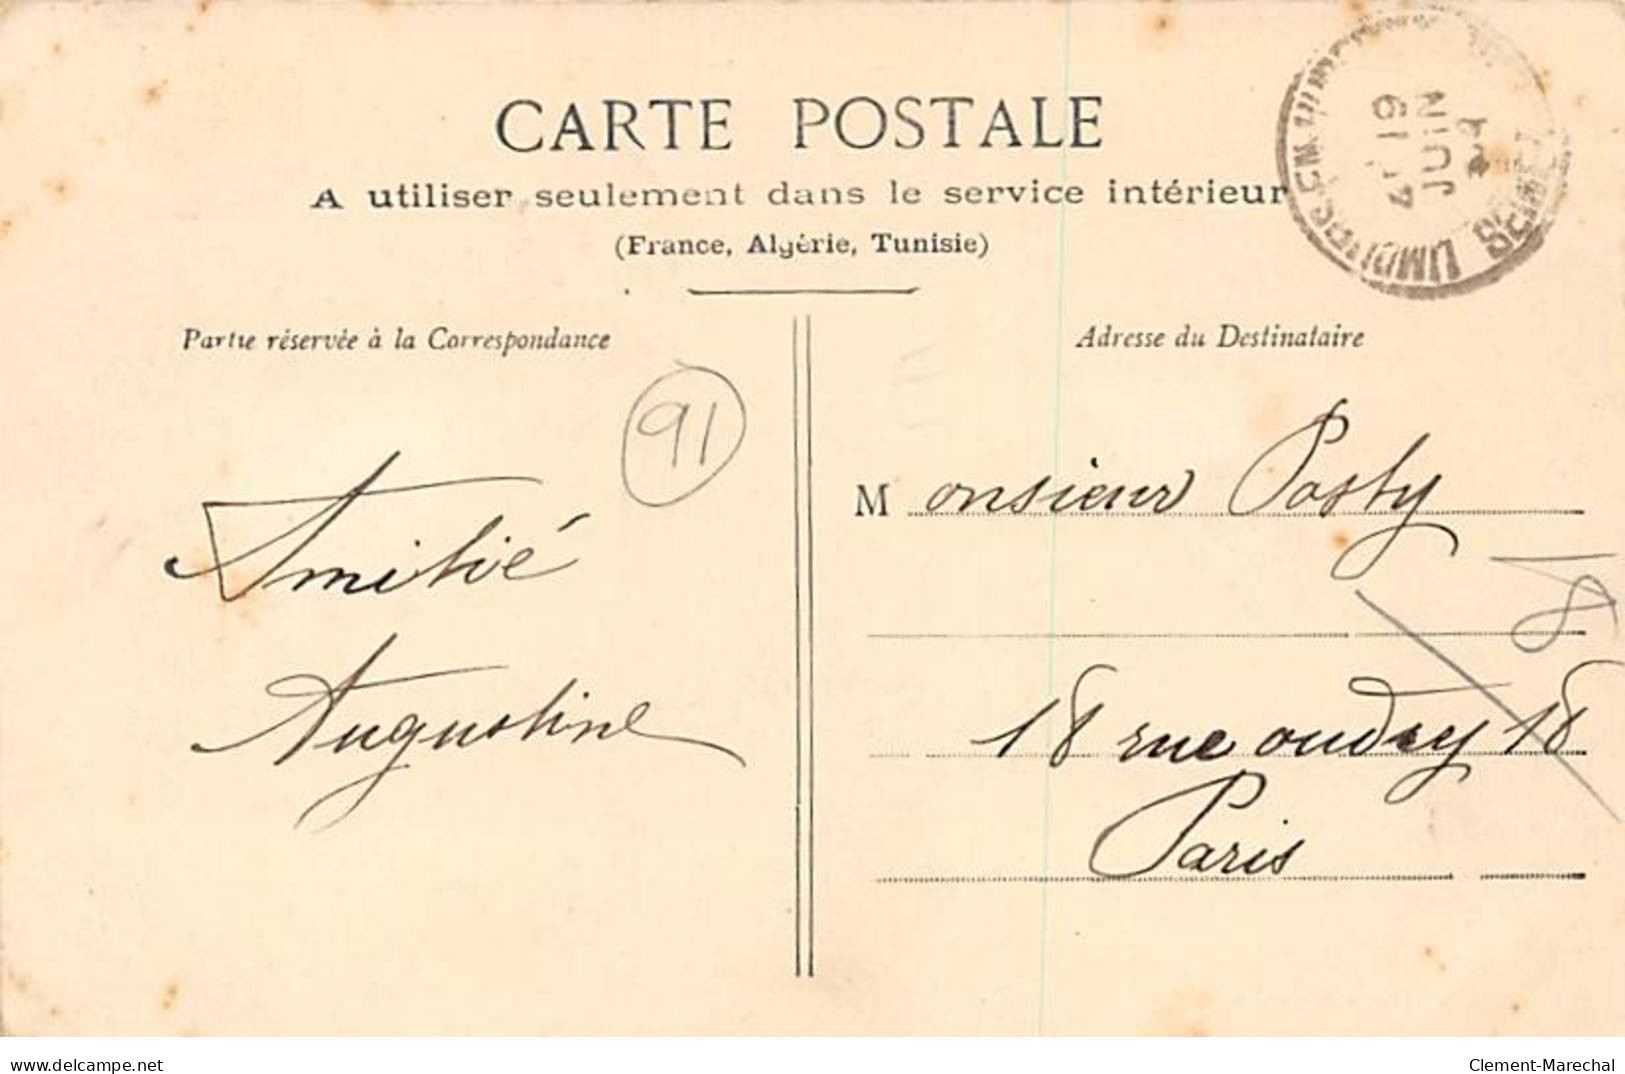 CARTE POSTALE
A utiliser seulement dans le service intérieur
(France, Algérie, Tunisie)
Partie réservée à la Correspondance
Adresse du Destinataire
91
Amitié
Augustine
Monsieur Posty
18 rue oudry 18
Paris
18
19
JUIN
LIMOURS EN
delcampe.net
Clement-Marechal